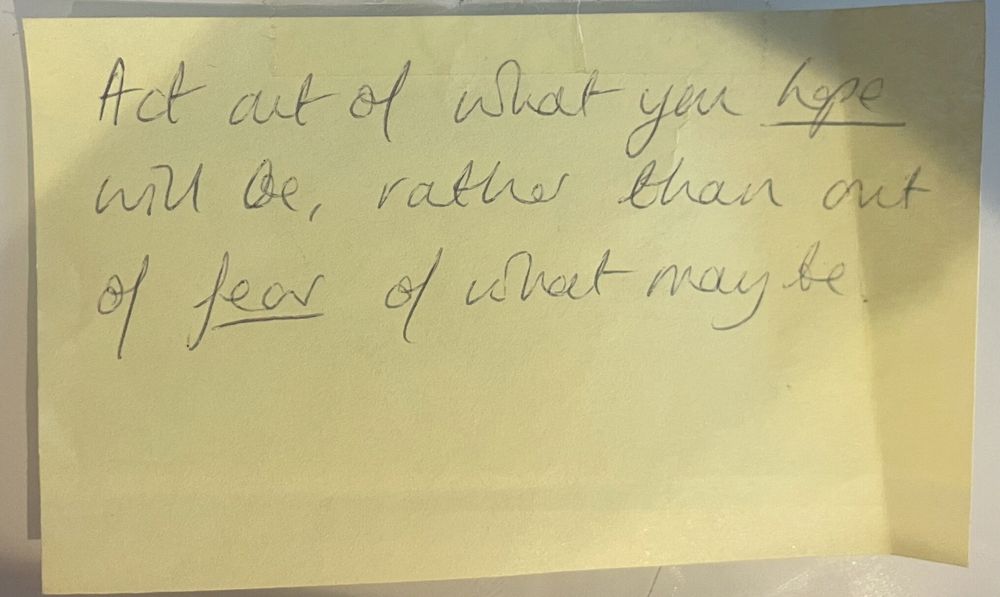 Act out of what you hope
will be, rather than out
of fear of what may be.